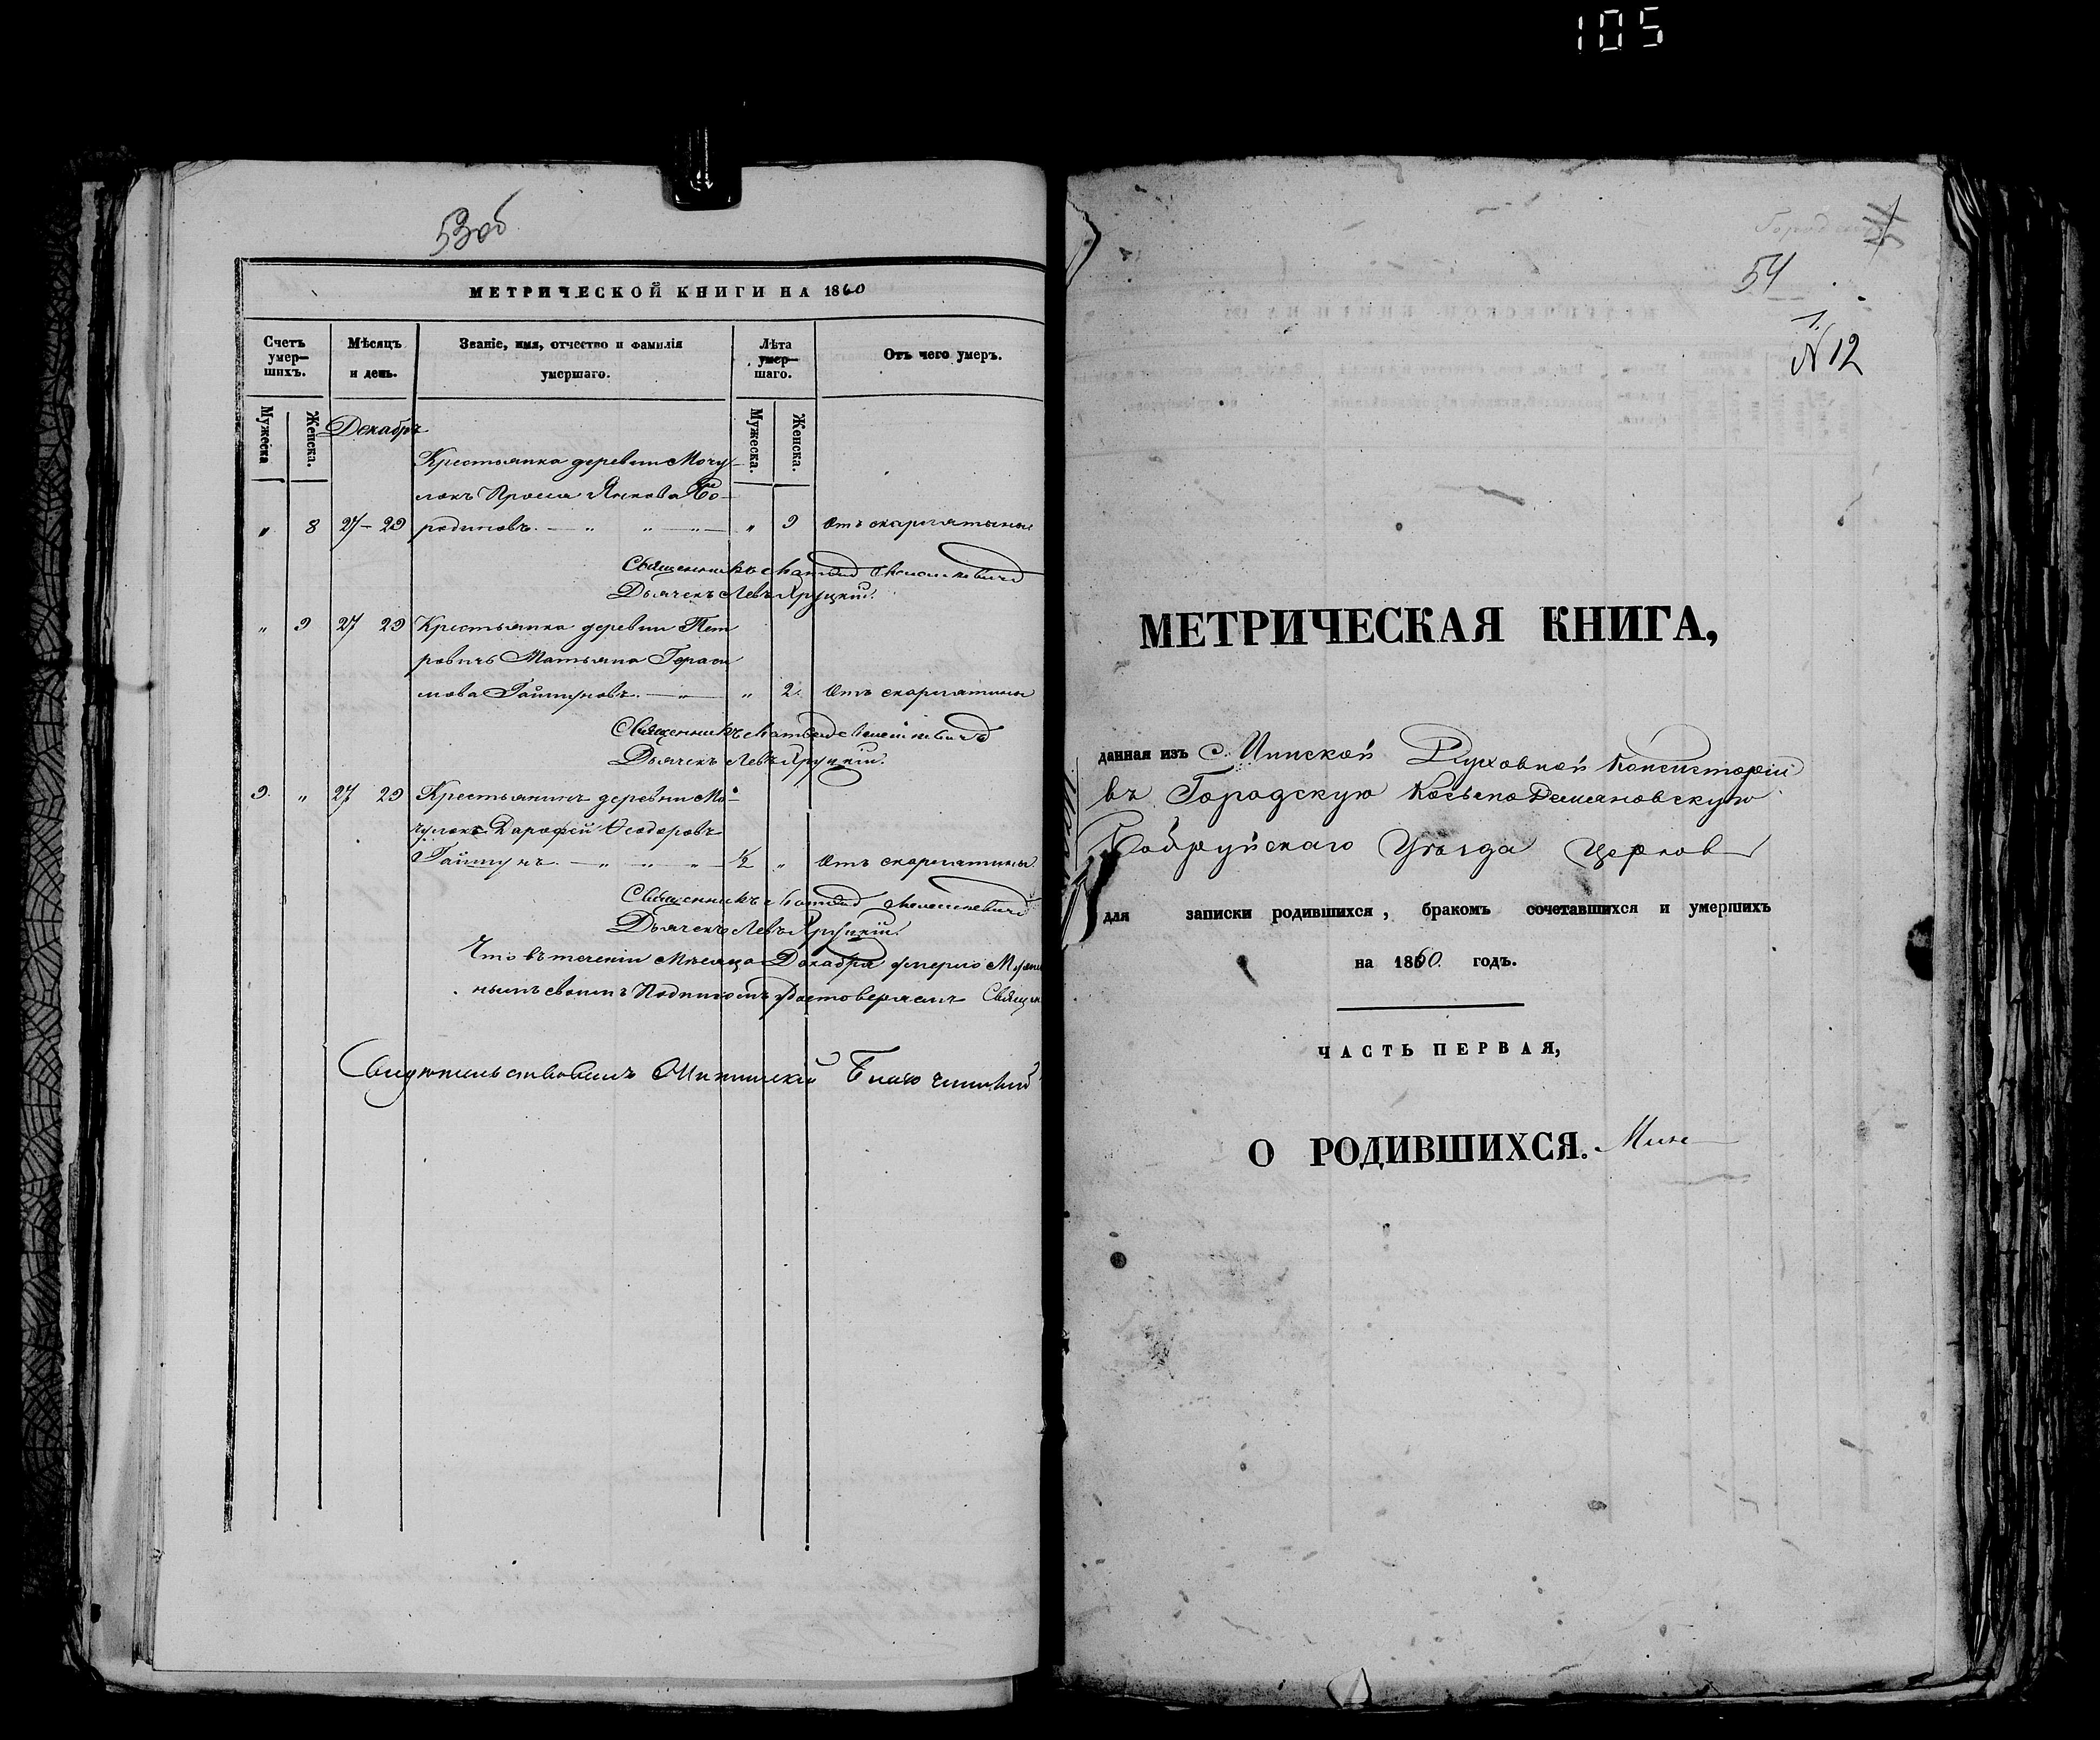 105
53об
МЕТРИЧЕСКОЙ КНИГИ НА 1860
Счетъ умер—шихъ.
Мѣсяцъ и день.
Званіе, имя, отчество и фамилія умершаго.
Лѣта умер—шаго.
Отъ чего умеръ.
Мужеска
Женска.
Мужеска.
Женска.
Декабрь
Крестьянка деревни Мочу-
локъ Янкова Бо-
" 8 27–29 родиновъ. — " " — " 9 Отъ скарлатины
Священникъ
Дьячекъ Левъ Хруцкій.
" 9 27 29 Крестьянка деревни Пет
ровичь Татьяна Гераси
мова Гайтуновъ. — " — " 2. Отъ скарлатины
Священникъ
Дьячекъ Левъ Хруцкій.
9. " 27 29 Крестьянинъ деревни Мо-
чулокъ Дарофей Ѳеодоровъ
Гайтунъ. — " " " — ½ " Отъ скарлатины
Священникъ
Дьячекъ Левъ Хруцкій.
Что въ теченіи Мѣсяца Декабря умерло
своимъ Подписомъ удостоверяемъ Священ
Свидѣтельствовалъ Благочинный
54
1.
N 12
МЕТРИЧЕСКАЯ КНИГА,
данная изъ Минской Духовной Консисторіи
въ Городскую Косьмо Демяновскую
Бобруйскаго Уѣзда Церковь
для записки родившихся, бракомъ сочетавшихся и умершихъ
на 1860. годъ.
ЧАСТЬ ПЕРВАЯ,
О РОДИВШИХСЯ.